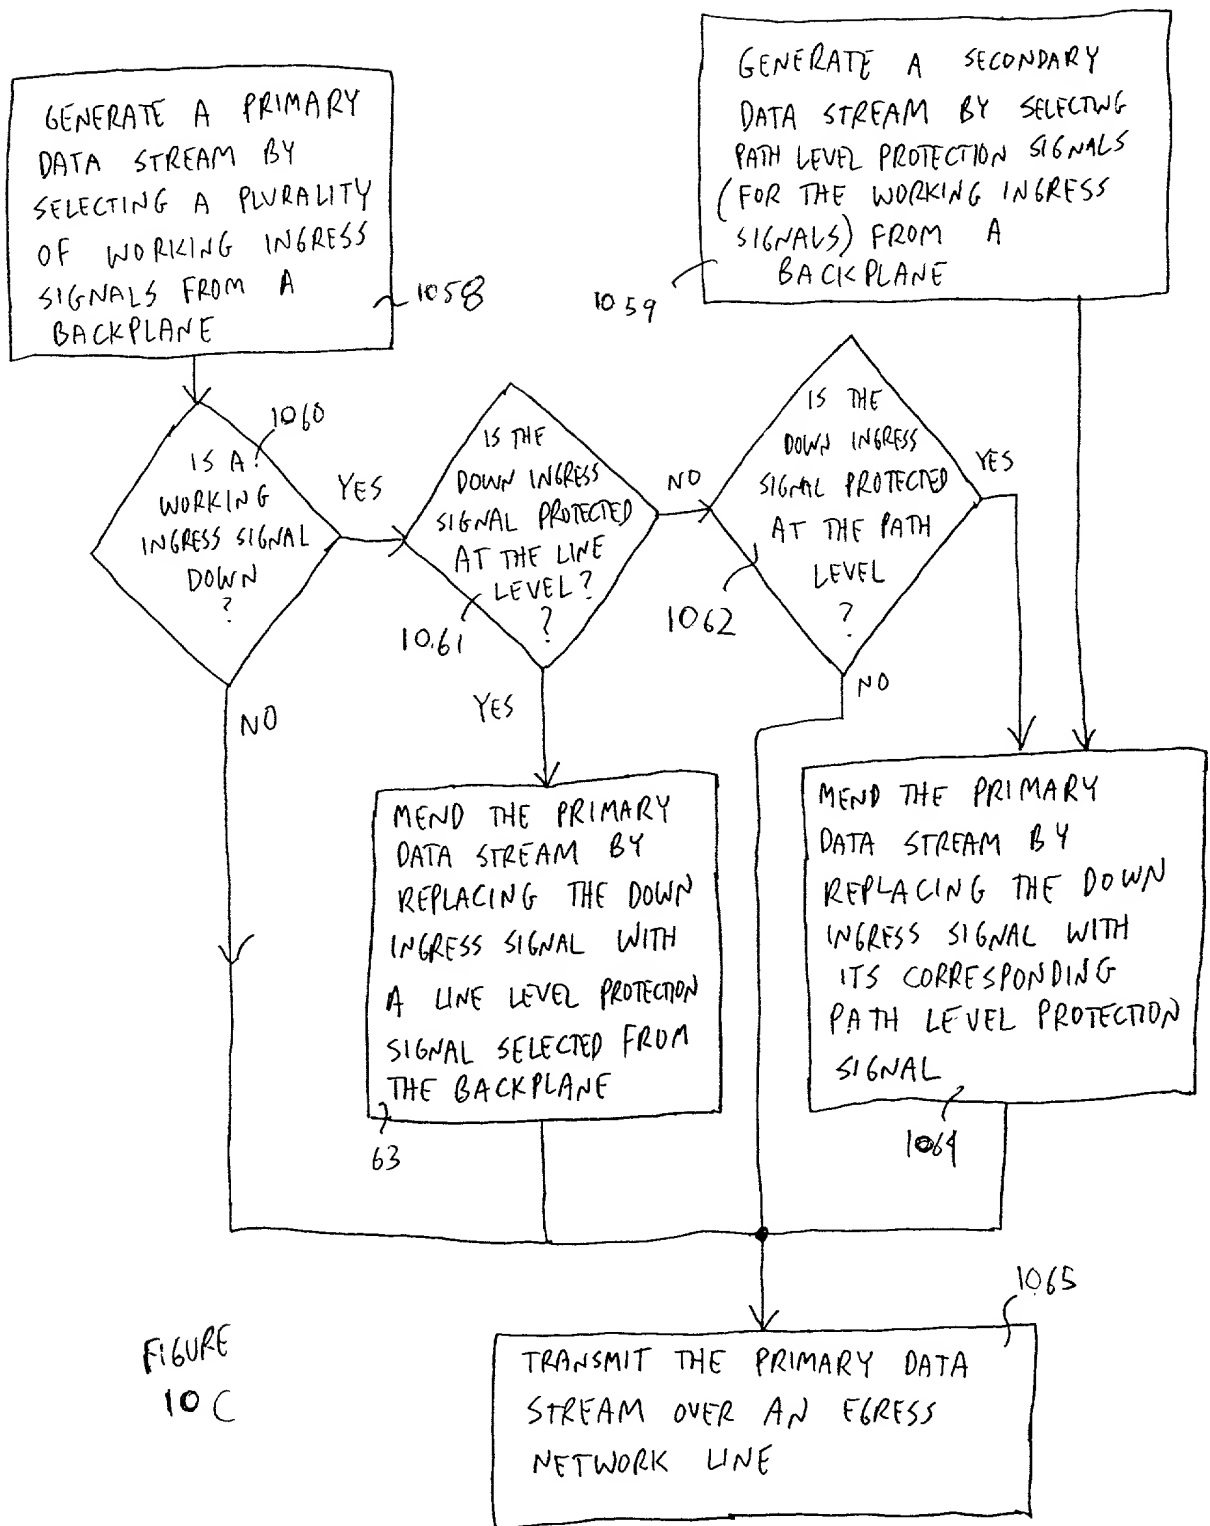 GENERATE A PRIMARY
DATA STREAM BY
SELECTING A PLURALITY
OF WORKING INGRESS
SIGNALS FROM A
BACKPLANE
1058
GENERATE A SECONDARY
DATA STREAM BY SELECTING
PATH LEVEL PROTECTION SIGNALS
(FOR THE WORKING INGRESS
SIGNALS) FROM A
BACKPLANE
1059
1060
IS A
WORKING
INGRESS SIGNAL
DOWN
?
YES
NO
IS THE
DOWN INGRESS
SIGNAL PROTECTED
AT THE LINE
LEVEL?
?
1061
NO
YES
IS THE
DOWN INGRESS
SIGNAL PROTECTED
AT THE PATH
LEVEL
?
1062
YES
NO
MEND THE PRIMARY
DATA STREAM BY
REPLACING THE DOWN
INGRESS SIGNAL WITH
A LINE LEVEL PROTECTION
SIGNAL SELECTED FROM
THE BACKPLANE
63
MEND THE PRIMARY
DATA STREAM BY
REPLACING THE DOWN
INGRESS SIGNAL WITH
ITS CORRESPONDING
PATH LEVEL PROTECTION
SIGNAL
1064
1065
TRANSMIT THE PRIMARY DATA
STREAM OVER AN EGRESS
NETWORK LINE
FIGURE
10C